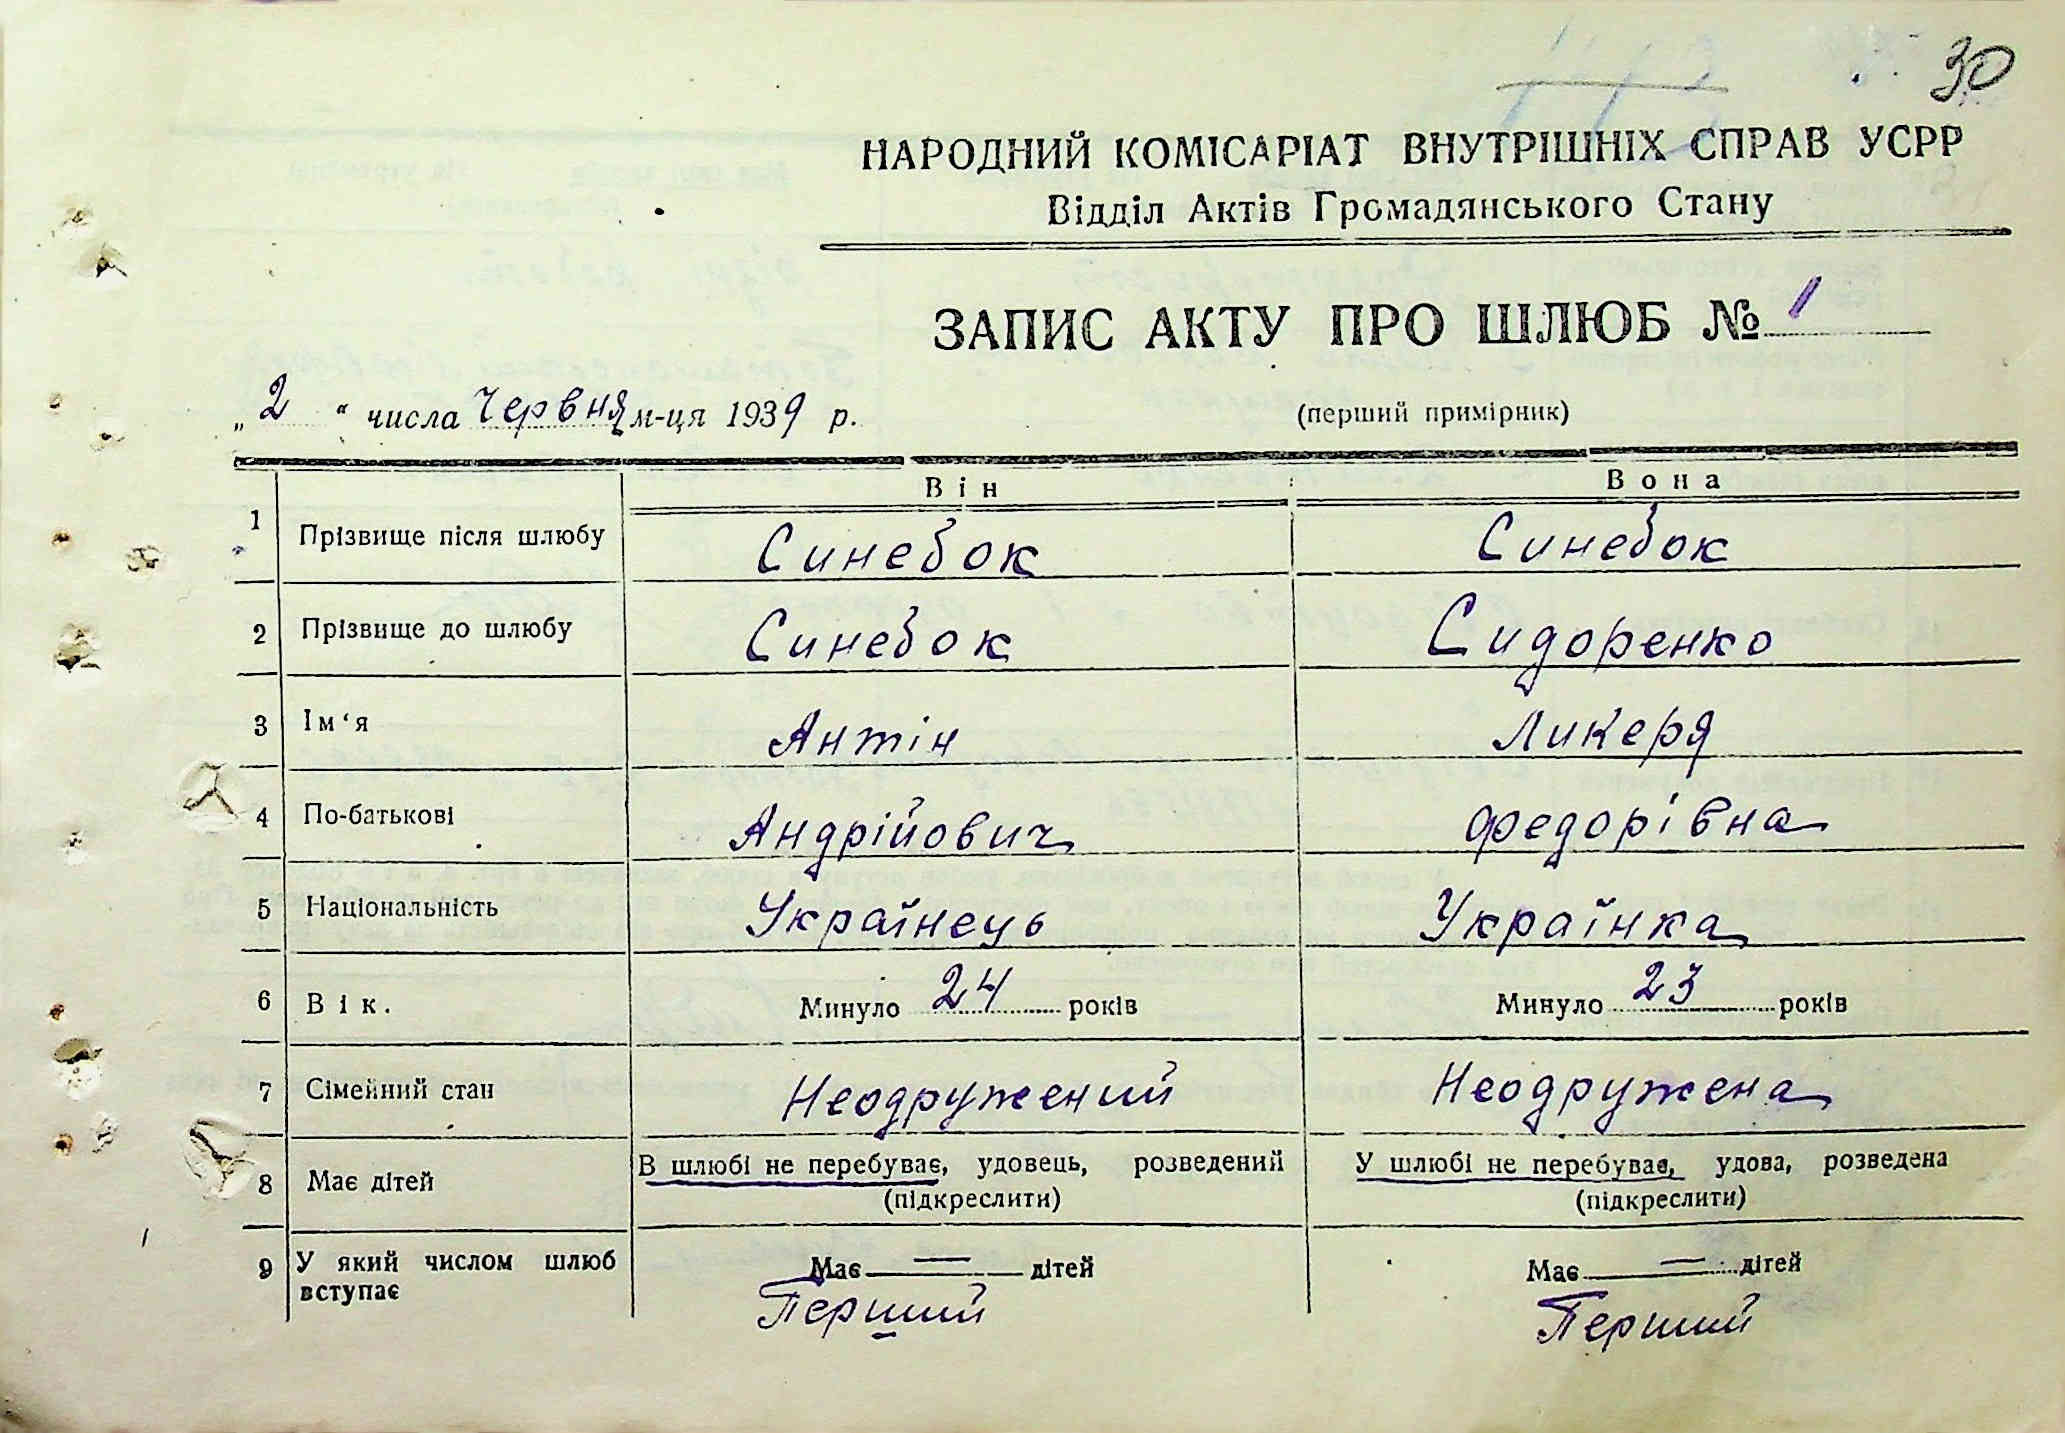 30
НАРОДНИЙ КОМІСАРІАТ ВНУТРІШНІХ СПРАВ УСРР
Відділ Актів Громадянського Стану
ЗАПИС АКТУ ПРО ШЛЮБ № 1
„2“ числа Червня м-ця 1939 р.
(перший примірник)
Він Вона
1 Прізвище після шлюбу Синебок Синебок
2 Прізвище до шлюбу Синебок Сидоренко
3 Ім‘я Антін Ликеря
4 По-батькові Андрійович Федорівна
5 Національність Українець Українка
6 Вік. Минуло 24 років Минуло 23 років
7 Сімейний стан Неодружений Неодружена
8 Має дітей В шлюбі не перебуває, удовець, розведений У шлюбі не перебуває, удова, розведена
(підкреслити) (підкреслити)
9 У який числом шлюб вступає Має — дітей Має — дітей
Перший Перший